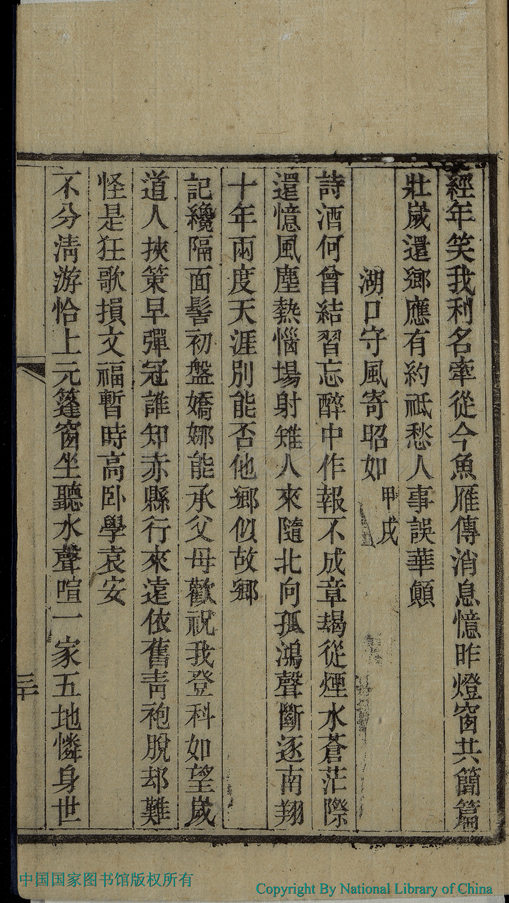 經年笑我利名牽從今魚雁傳消息憶昨燈窗共簡篇
壯嵗還鄉應有約祗愁人事誤華顚
湖口守風寄昭如甲戌
詩酒何曾結習忘醉中作報不成章朅從煙水蒼茫際
還憶風塵熱惱塲射雉人來隨北向孤鴻聲斷逐南翔
十年兩度天涯別能否他鄉似故鄉
記纔隔面髻初盤嬌娜能承父母歡祝我登科如望嵗
道人挾策早彈冠誰知赤縣行來遠依舊靑袍脫却難
怪是狂歌損文福暫時高卧學袁安
不分淸游恰上元篷窗坐聽水聲喧一家五地憐身世
三十
中国国家图书馆版权所有
Copyright By National Library of China